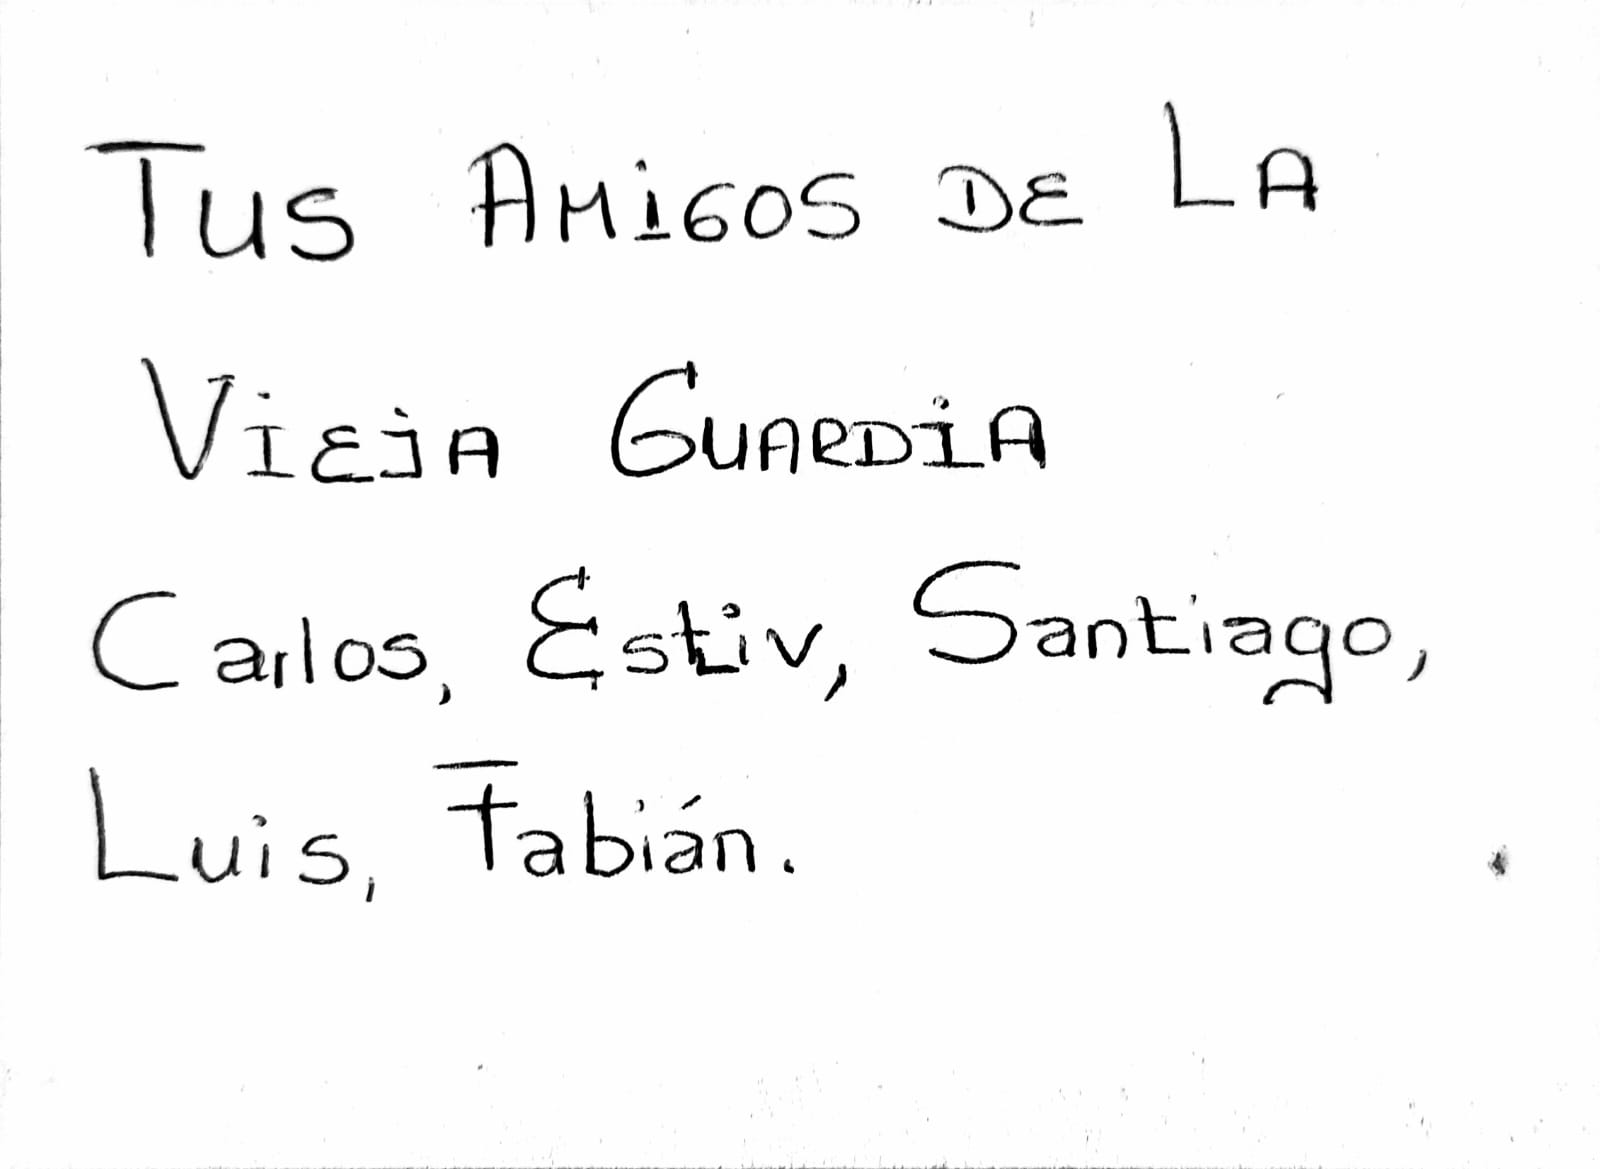 Tus Amigos de La
Vieja Guardia
Carlos, Estiv, Santiago,
Luis, Fabián.